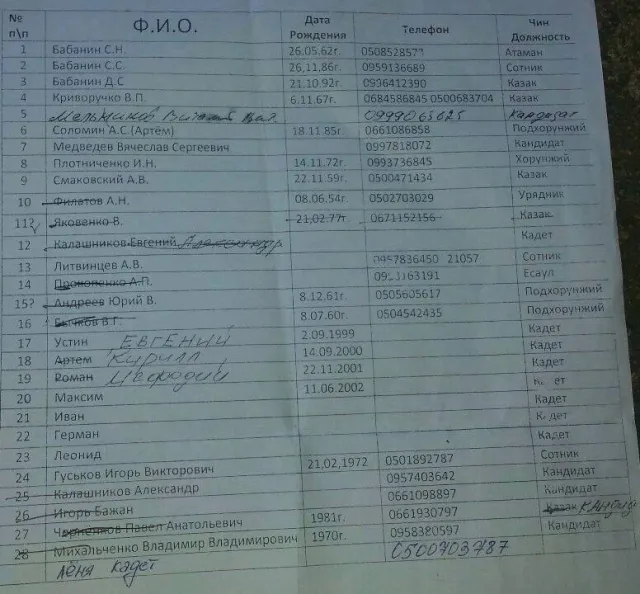 № п\п Ф.И.О. Дата Рождения Телефон Чин Должность
1 Бабанин С.Н. 26.05.62г. 0508528573 Атаман
2 Бабанин С.С. 26,11.86г. 0959136689 Сотник
3 Бабанин Д.С 21.10.92г. 0996412390 Казак
4 Криворучко В.П. 6.11.67г. 0684586845 0500683704 Казак
5 Мельников 0999063625 Кандидат
6 Соломин А.С.(Артём) 18.11.85г. 0661086858 Подхорунжий
7 Медведев Вячеслав Сергеевич 0997818072 Кандидат
8 Плотниченко И.Н. 14.11.72г. 0993736845 Хорунжий
9 Смаковский А.В. 22.11.59г. 0500471434 Казак
10 Филатов А.Н. 08.06.54г. 0502703029 Урядник
11? Яковенко В. 21,02.77г. 0671152156 Казак
12 Калашников Евгений Александр Кадет
13 Литвинцев А.В. 0957836450 21057 Сотник
14 Прокопенко А.П. Есаул
15? Андреев Юрий В. 8.12.61г. 0505605617 Подхорунжий
16 Бычков В.Г. 8.07.60г. 0504542435 Подхорунжий
17 Устин ЕВГЕНИЙ 2.09.1999 Кадет
18 Артем КИРИЛЛ 14.09.2000 Кадет
19 Роман Мефодий 22.11.2001 Кадет
20 Максим 11.06.2002 Кадет
21 Иван Кадет
22 Герман Кадет
23 Леонид Кадет
24 Гуськов Игорь Викторович 21,02,1972 0501892787 Сотник
25 Калашников Александр 0957403642 Кандидат
26 Игорь Бажан 0661098897 Кандидат
27 Павел Анатольевич 1981г. 0661930797 Казак
28 Михальченко Владимир Владимирович 1970г. 0958380597 Кандидат
Лёня Кадет 0500703787